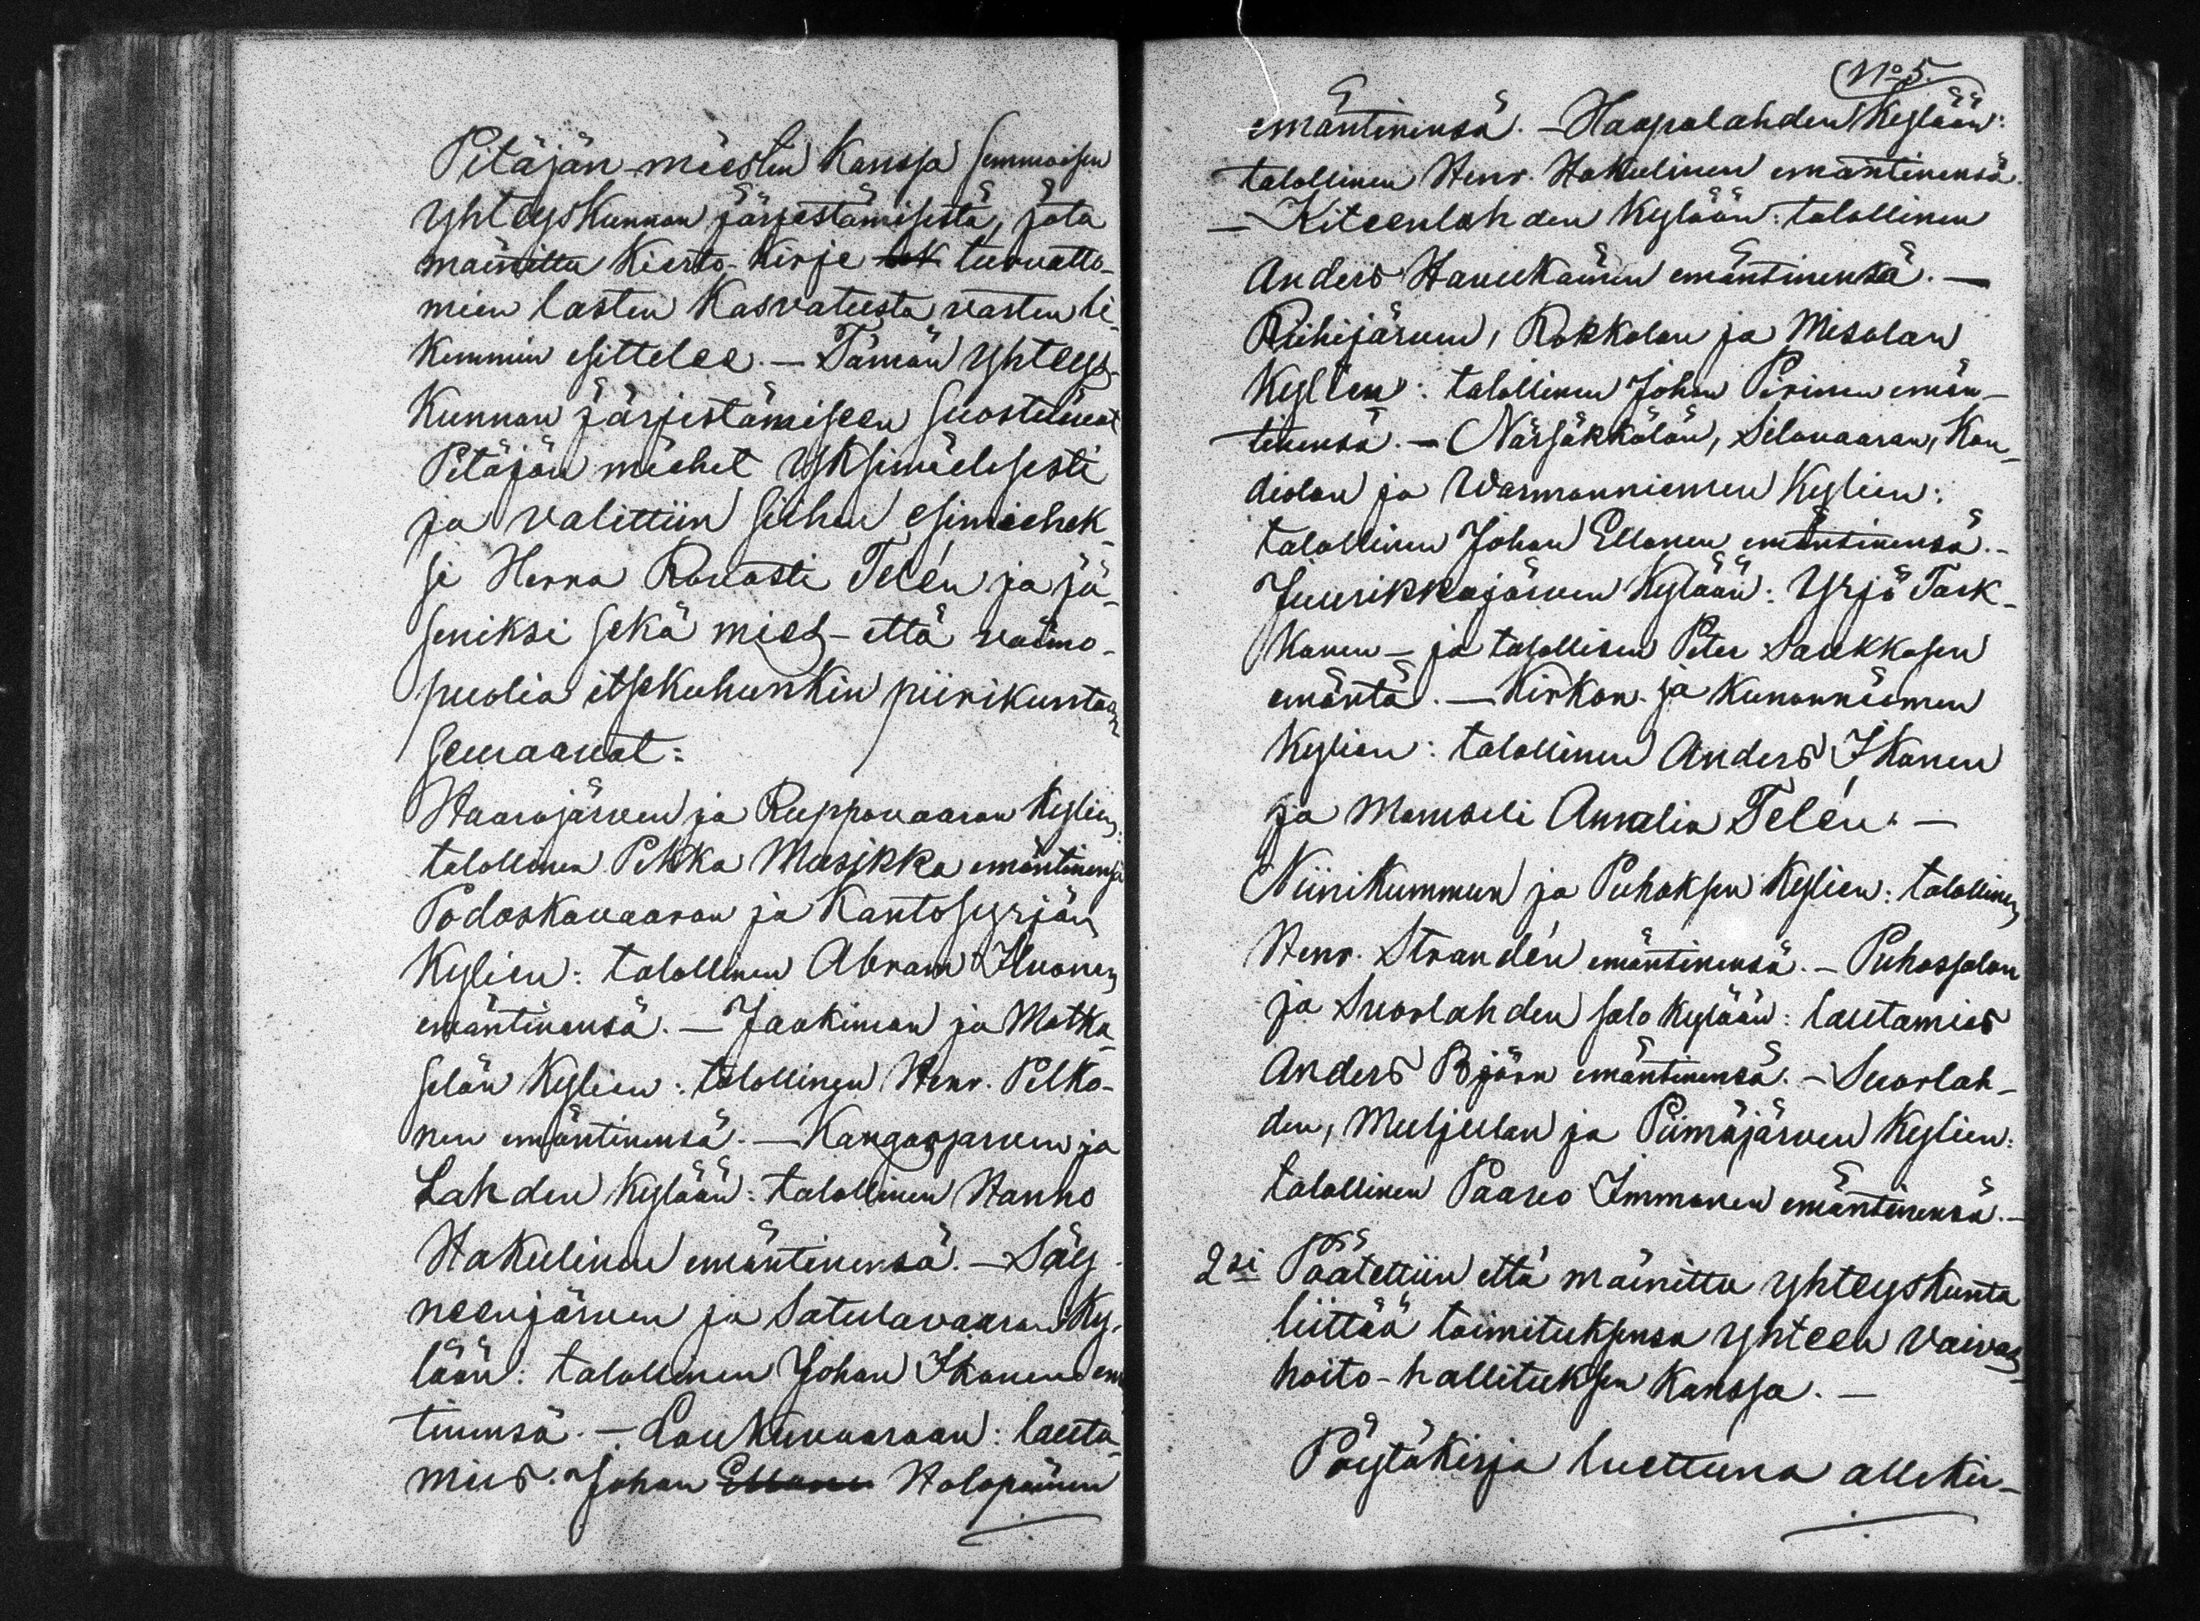 Pitäjän miesten kanssa semmoisen
yhteyskunnan järjestämisestä, jota
mainittu Kierto-Kirje turvatto-
mien lasten kasvatusta varten li-
kemmin esittelee. — Tämän yhteys-
kunnan järjestämiseen suostuivat
Pitäjän miehet yksimielisesti
ja valittiin siihen esimiehek-
si Herra Rovasti Telén ja jä-
seniksi sekä mies- että vaimo-
puolia itsekuhunkin piirikuntaan
seuraavat:
Haarajärven ja Ruppovaaran Kylien:
talollinen Pekka Musikka emäntinensä
Podoskavaaran ja Kantosyrjän
Kylien: talollinen Abram Ihvonen
emäntinensä. — Jaakiman ja Matka-
selän Kylien: talollinen Henr. Pelko-
nen emäntinensä. — Kangasjärven ja
Lahden Kylään: talollinen Hannes
Hakulinen emäntinensä. — Säy-
neenjärven ja Satulavaaran Ky-
lään: talollinen Johan Ikonen emän
tinensä. — Loukuvaaraan: lauta-
mies. Johan Ellonen Holopainen
No 5.
emäntinensä. — Haapalahden Kylään:
talollinen Henr. Hakulinen emäntinensä.
— Kiteenlahden Kylään: talollinen
Anders Haukainen emäntinensä. —
Riihijärven, Rokkolan ja Misolan
Kylien: talollinen Johan Pirinen emän-
tinensä. — Närsäkkälän, Selovaaran, Kon-
diolan ja Warmonniemen Kylien:
talollinen Johan Ellonen emäntinensä. —
Juurikkajärven Kylään: Yrjö Task-
kanen — ja talollisen Peter Saukkosen
emäntä. — Kirkon- ja Kunonniemen
Kylien: talollinen Anders Ikonen
ja Mamseli Amalia Telén. —
Niinikummun ja Puhoksen Kylien: talollinen
Henr. Strandén emäntinensä. — Puhossalon
ja Suorlahden salo Kylään: lautamies
Anders Björn emäntinensä. — Suorlah-
den, Muljulan ja Piimäjärven Kylien:
talollinen Paavo Immonen emäntinensä. —
2si Päätettiin että mainittu yhteyskunta
liittää toimituksensa yhteen Vaivas-
hoito-hallituksen kanssa. —
Pöytäkirja luettuna allekir-